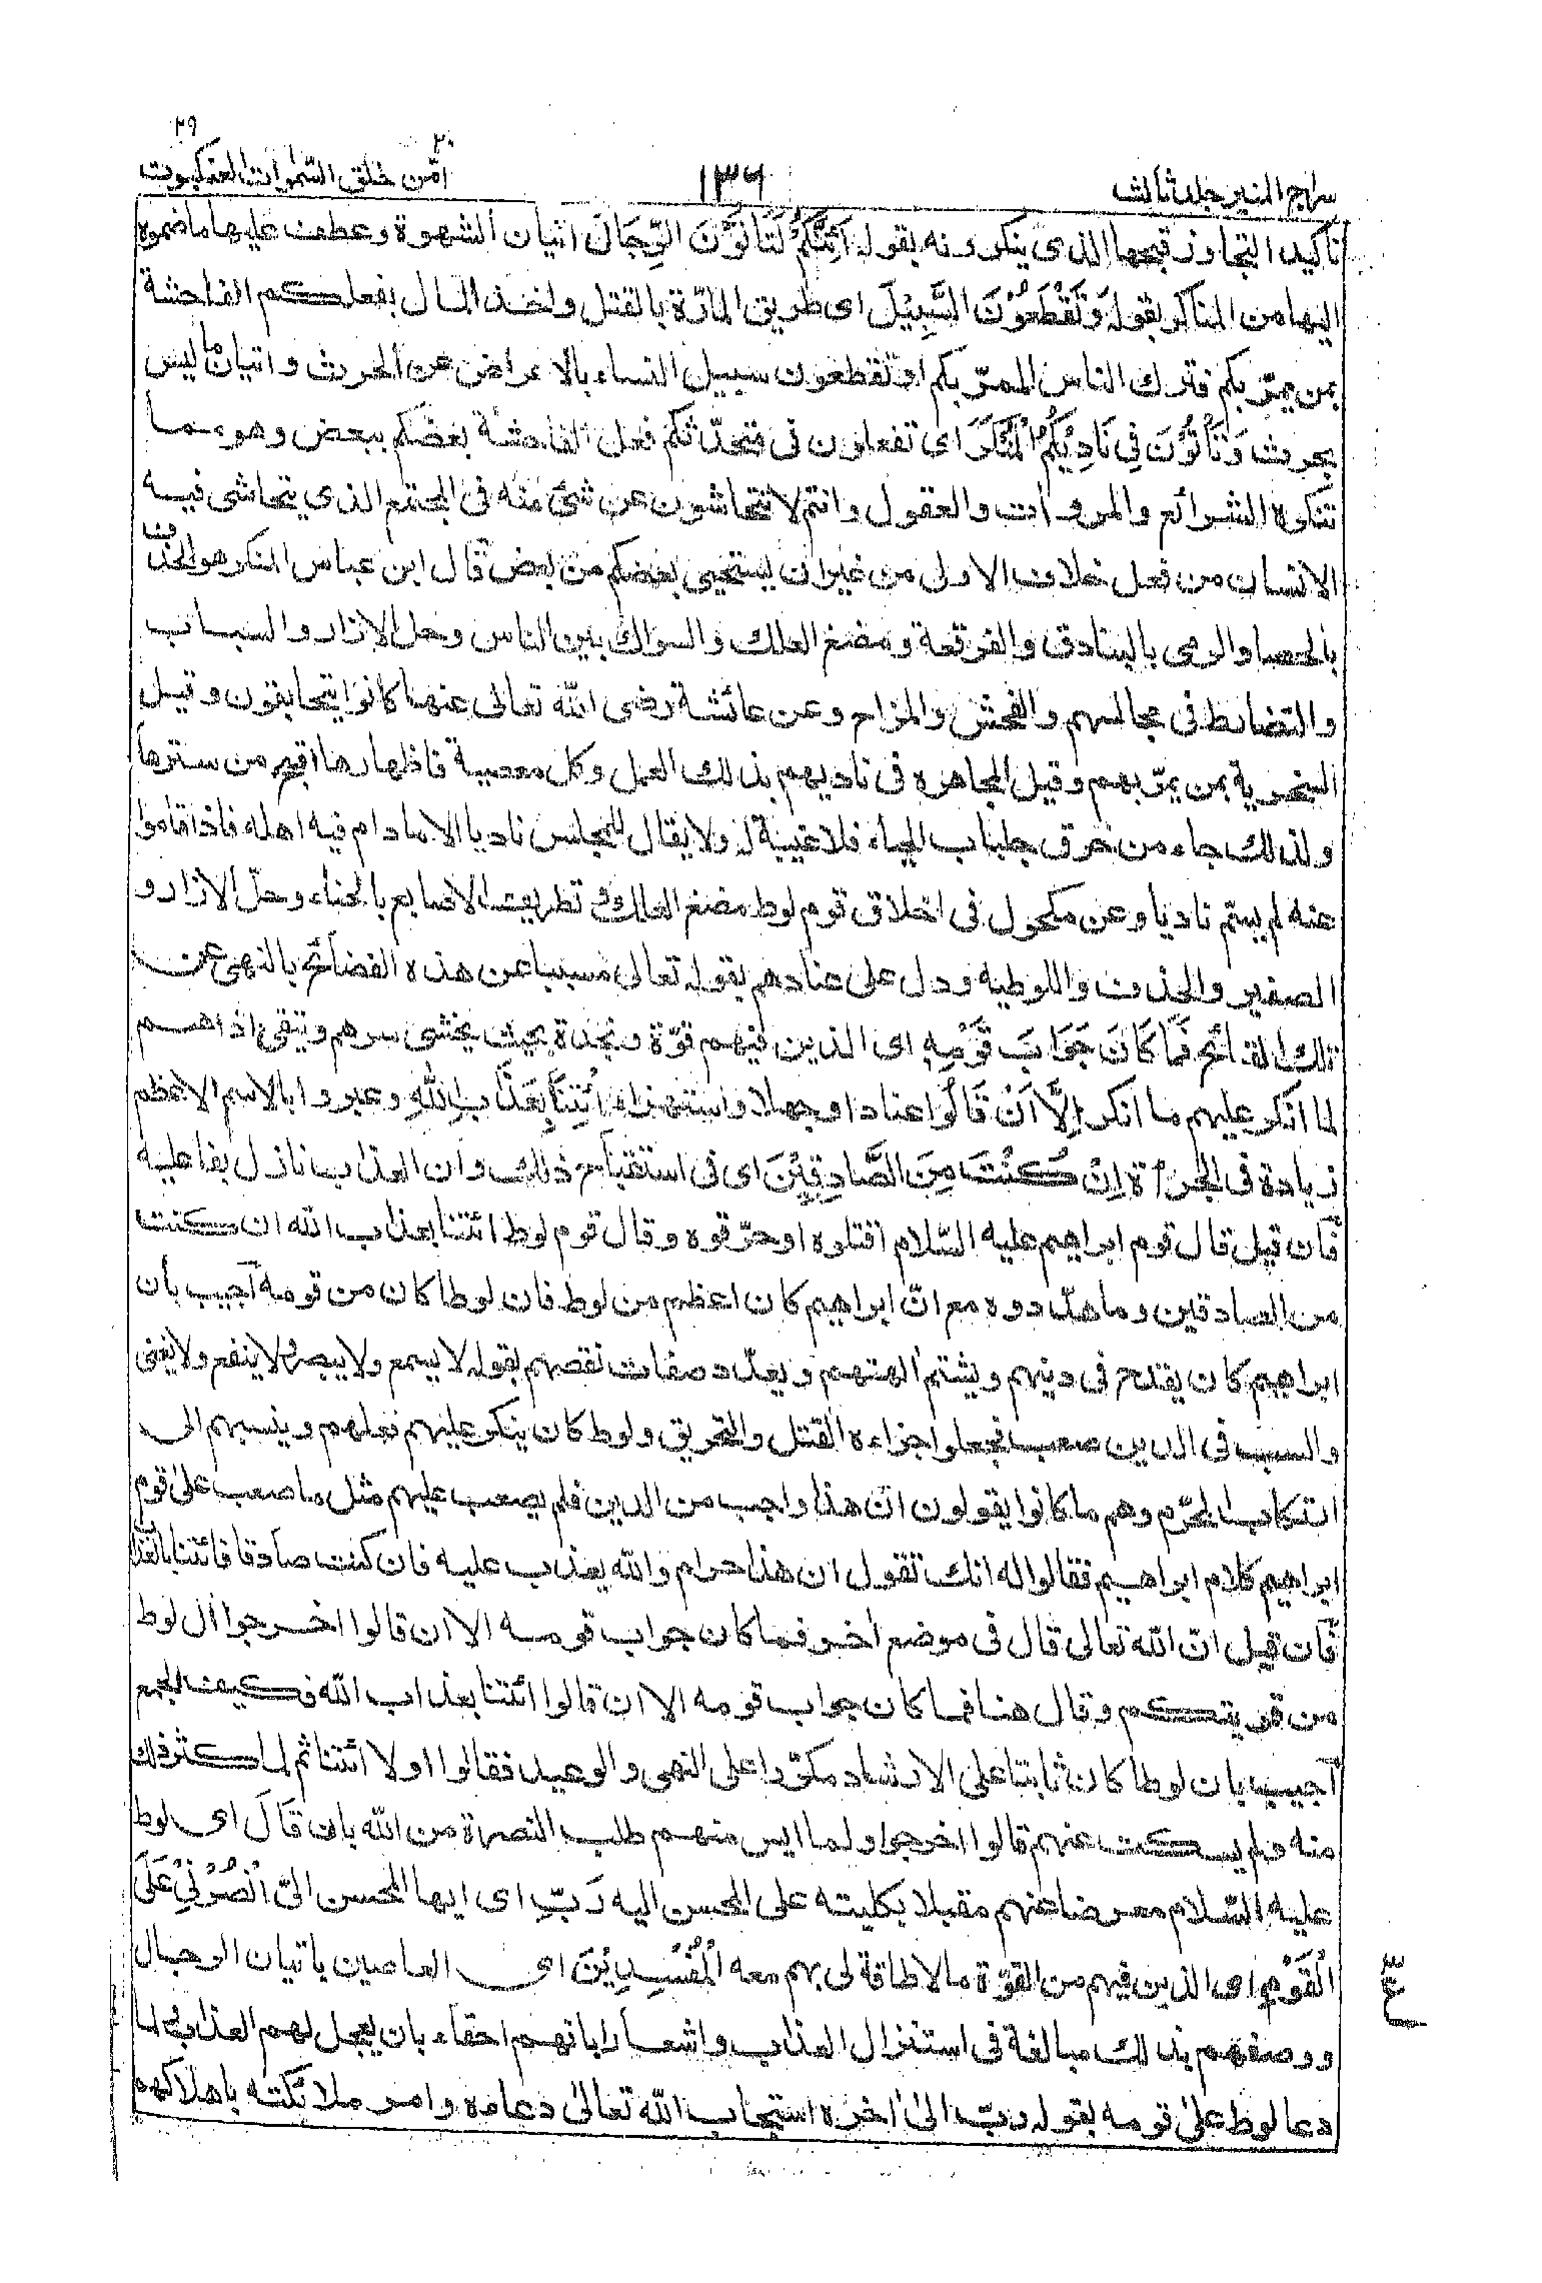 ٢٩
٢٠
سراج المنير جلد ثالث
١٣٦
امّن خلق السّموات العنكبوت
تأكيد التجاوز قبحها الذى ينكرونه بقوله اَئِنَّكُمْ لَتَأْتُوْنَ الرِّجَالَ اتيان الشهوة وعطف عليها ما ضموه
اليها من المناكر بقوله وَتَقْطَعُوْنَ السَّبِيْلَ اى طريق المارّة بالقتل واخذ المال بفعلكم الفاحشة
بمن يمرّ بكم فترك الناس الممرّ بكم او تقطعون سبيل النساء بالاعراض عن الحرث واتيان ما ليس
بحرث وَتَأْتُوْنَ فِى نَادِيْكُمُ الْمُنْكَرَ اى تفعلون فى متحدّثكم فعل الفاحشة بعضكم ببعض وهو مما
تنكره الشرائع والمروات والعقول وانتم لا تتحاشون عن شئ منه فى المجتمع الذى يتحاشى فيه
الانسان من فعل خلاف الاولى من غير ان يستحيى بعضكم من بعض قال ابن عباس المنكر هو الخذف
بالحصا والرمى بالبنادق والفرقعة ومضغ العلك والسواك بين الناس وحل الازار والسباب
والتضابط فى مجالسهم والفحش والمزاح وعن عائشة رضى الله تعالى عنها كانوا يتحابقون وقيل
السخرية بمن يمرّ بهم وقيل المجاهره فى ناديهم بذلك العمل وكل معصية فاظهارها اقبح من سترها
ولذلك جاء من خرق جلباب الحياء فلا غيبة له ولا يقال للمجلس ناديا الا ما دام فيه اهله فاذا قاموا
عنه لم يسم ناديا وعن مكحول فى اخلاق قوم لوط مضغ العلك و تطريف الاصابع بالحناء وحلّ الازار و
الصفير والخذف واللوطية ودل على عنادهم بقوله تعالى مسببا عن هذه الفضائح بالنهى عن
تلك القبائح فَمَا كَانَ جَوَابَ قَوْمِهٖ اى الذين فيهم قوّة ونجدة بحيث يخشى سرهم ويتقى اذاهم
لما انكر عليهم ما انكر اِلَّا اَنْ قَالُوْا عنادا وجهلا واستهزاء ائْتِنَا بِعَذَابِ اللّٰهِ وعبروا بالاسم الاعظم
زيادة فى الجرأة اِنْ كُنْتَ مِنَ الصَّادِقِيْنَ اى فى استقباح ذلك وان العذاب نازل بفاعليه
فان قيل قال قوم ابراهيم عليه السّلام اقتلوه او حرّقوه وقال قوم لوط ائتنا بعذاب الله ان كنت
من الصادقين وما هدّدوه مع انّ ابراهيم كان اعظم من لوط فان لوطا كان من قومه اجيب بأن
ابراهيم كان يقدح فى دينهم ويشتم الهتهم ويعدّد صفات نقصهم بقوله لا يسمع ولا يبصر ولا ينفع ولا يغنى
والسب فى الدين صعب فجعلوا جزاءه القتل والتحريق ولوط كان ينكر عليهم فعلهم وينسبهم الى
ارتكاب المحرّم وهم ما كانوا يقولون انّ هذا واجب من الدين فلم يصعب عليهم مثل ما صعب على قوم
ابراهيم كلام ابراهيم فقالوا له انك تقول ان هذا حرام والله يعذب عليه فان كنت صادقا فائتنا بالعذاب
فان قيل انّ الله تعالى قال فى موضع اخر فما كان جواب قومه الا ان قالوا اخرجوا ال لوط
من قريتكم وقال هنا فما كان جواب قومه الا ان قالوا ائتنا بعذاب الله فكيف الجمع
اجيب بان لوطا كان ثابتا على الارشاد مكرّرا على النهى والوعيد فقالوا اولا ائتنا ثم لما كثر ذلك
منه ولم يسكت عنهم قالوا اخرجوا ولما ايس منهم طلب النصرة من الله بان قَالَ اى لوط
عليه السّلام معرضا عنهم مقبلا بكليته على المحسن اليه رَبِّ اى ايها المحسن الىّ انْصُرْنِىْ عَلَى
الْقَوْمِ اى الذين فيهم من القوّة ما لا طاقة لى بهم معه الْمُفْسِدِيْنَ اى العاصين باتيان الرجال
ووصفهم بذلك مبالغة فى استنزال العذاب واشعارا بانهم احقاء بان يعجل لهم العذاب ولما
دعا لوط على قومه بقوله ربّ الى اخره استجاب الله تعالى دعاءه وامر ملائكته باهلاكهم